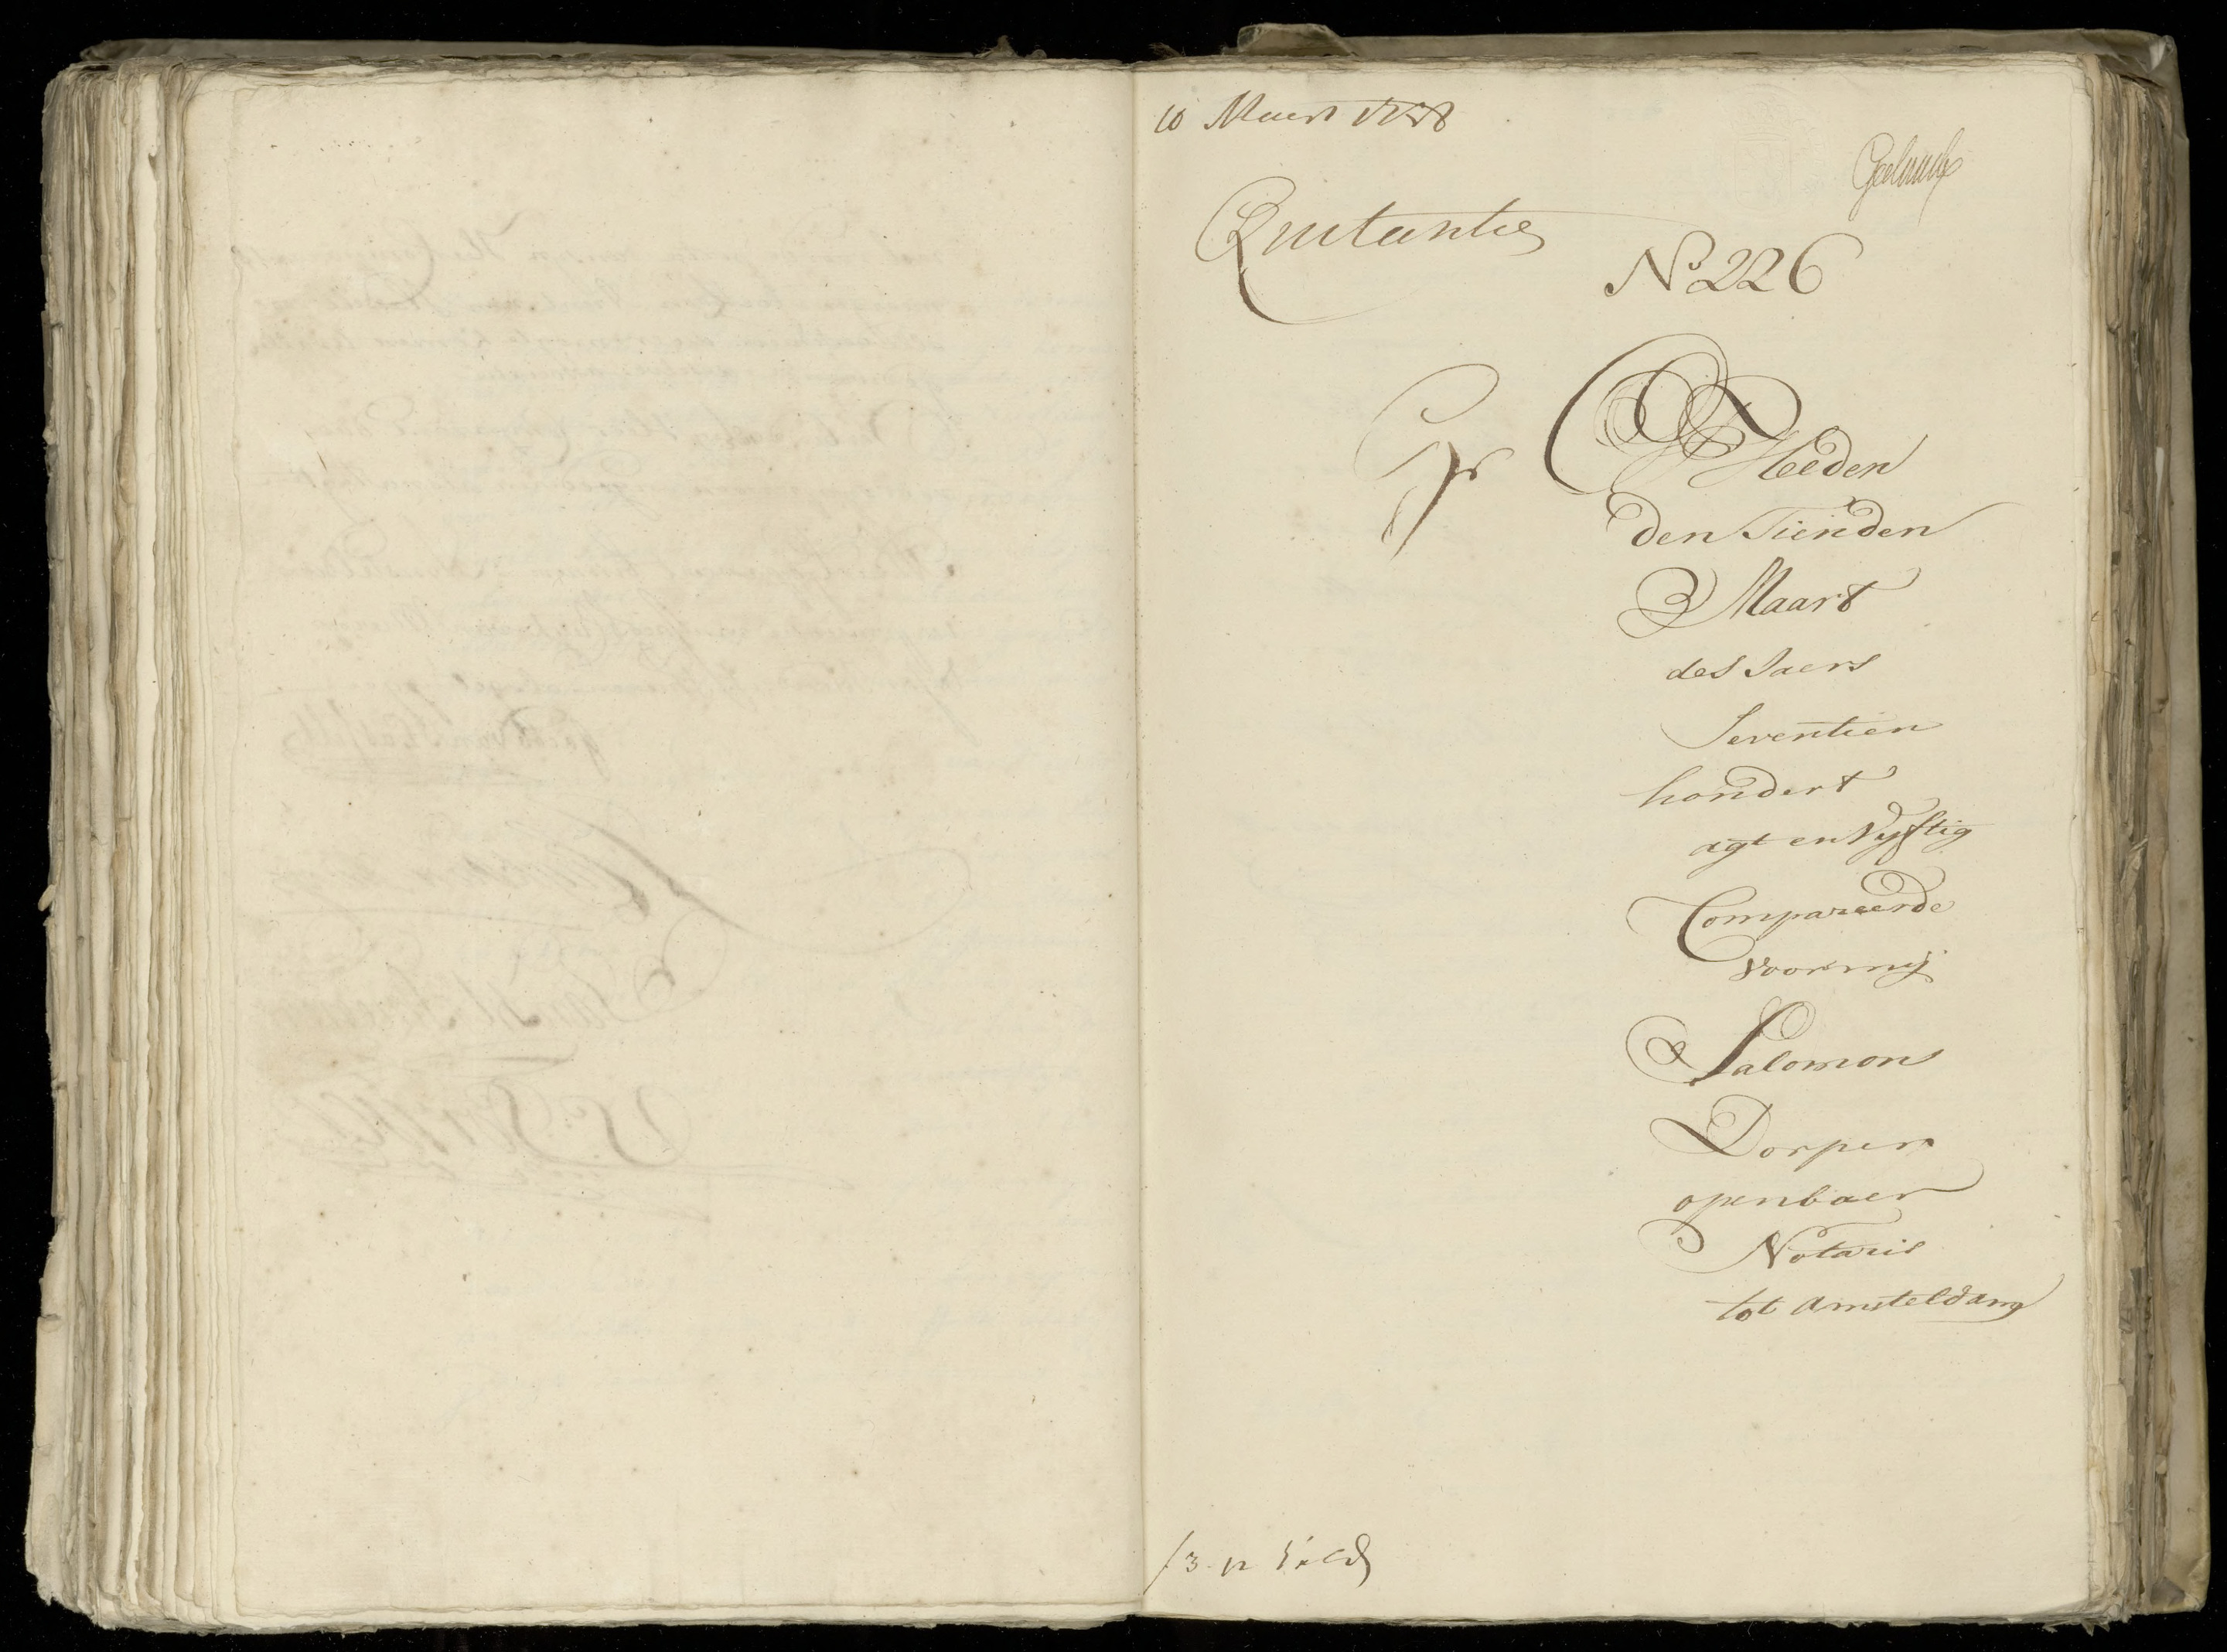 10 Maert 1758
Quitantie
No 226
Heeden
den Tienden
Maart
des Jaers
Seventien
hondert
agt en Vyftig
Compareerde
voor mij
Salomon
Dorper
openbaer
Notaris
tot Amsteldam
f 3 - 12